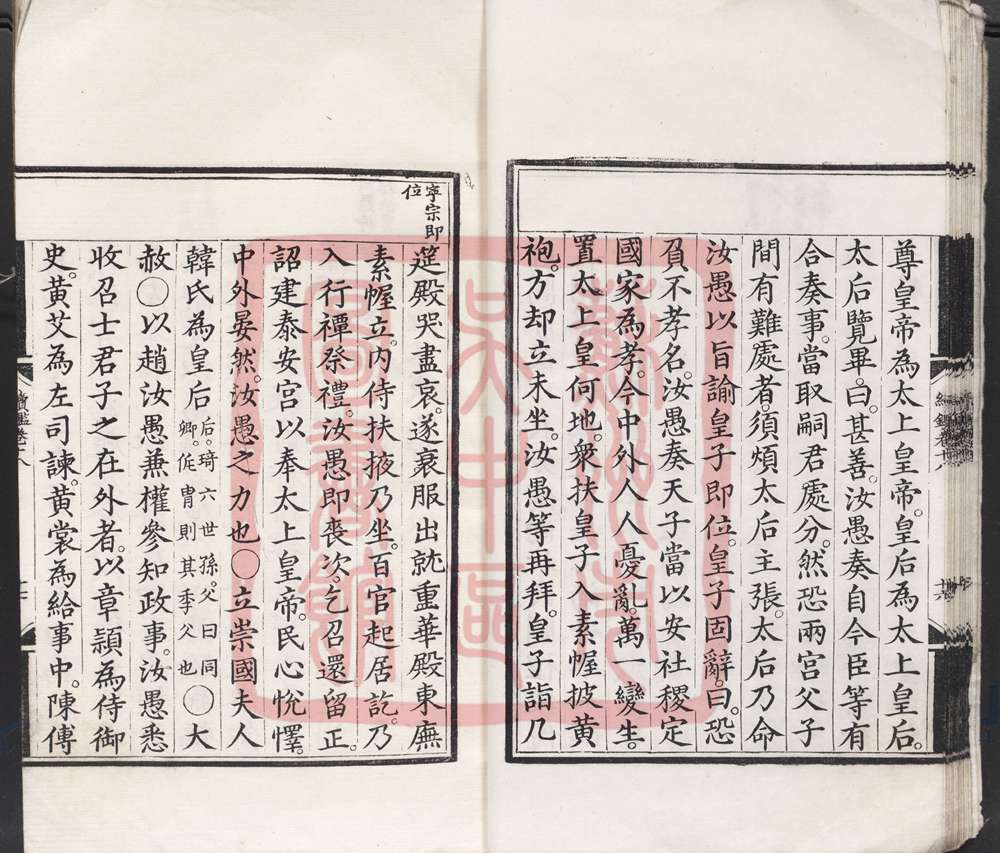 尊皇帝為太上皇帝。皇后為太上皇后。
太后覽畢。曰。甚善。汝愚奏自今臣等有
合奏事。當取嗣君處分。然恐兩宮父子
間有難處者。須煩太后主張。太后乃命
汝愚以旨諭皇子即位。皇子固辭。曰。恐
負不孝名。汝愚奏天子當以安社稷定
國家為孝。今中外人人憂亂。萬一變生。
置太上皇何地。衆扶皇子入素幄披黃
袍。方却立未坐。汝愚等再拜。皇子詣几
寧宗即
位
筵殿哭盡哀。遂衰服出就重華殿東廡
素幄立。内侍扶掖乃坐。百官起居訖。乃
入行禫祭禮。汝愚即喪次。乞召還留正。
詔建泰安宮以奉太上皇帝。民心悅懌。
中外晏然。汝愚之力也。○立崇國夫人
韓氏為皇后后。琦六世孫。父曰同
卿。侂胄則其季父也○大
赦○以趙汝愚兼權參知政事。汝愚悉
收召士君子之在外者。以章頴為侍御
史。黃艾為左司諫。黃裳為給事中。陳傅